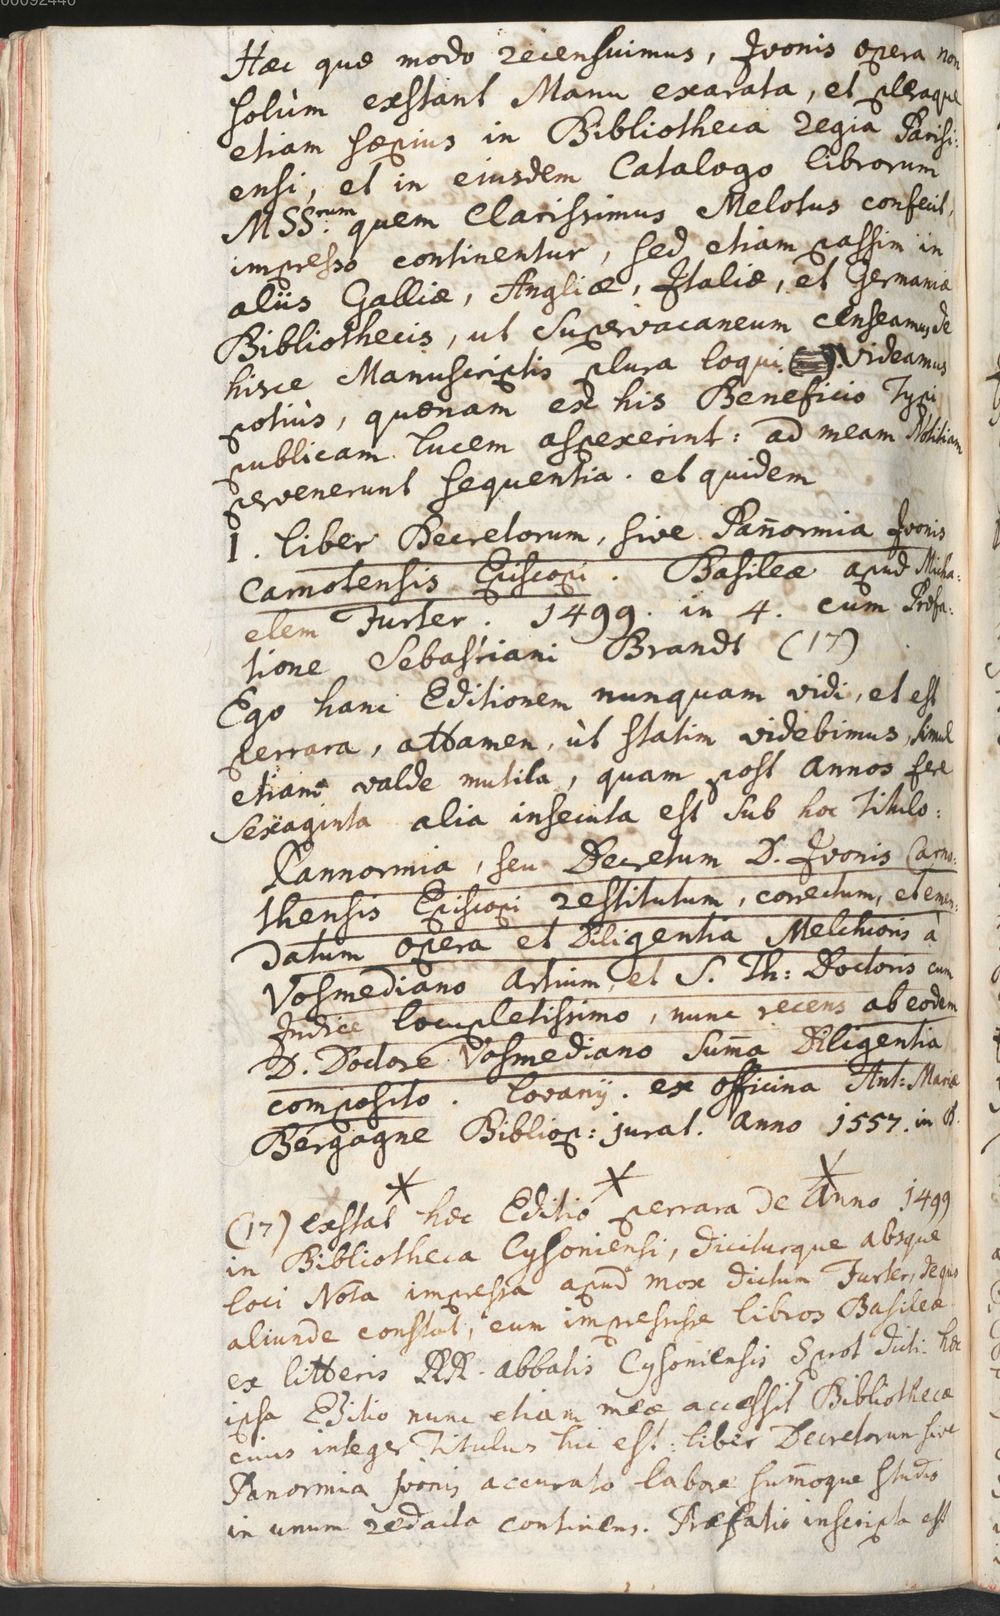 00092440
Hæc quæ modo recensuimus, Jvonis opera non
solùm exstant Manu exarata, et pleraque
etiam sæpius in Bibliotheca Regia Parisi:
ensi, et in eiusdem Catalogo librorum
MSS:rum quem Clarissimus Melotus confecit,
impresso continentur, sed etiam passim in
aliis Galliæ, Angliæ, Jtaliæ, et Germaniæ
Bibliothecis, ut supervacaneum censeamus de
hisce Manuscriptis plura loqui. Videamus
potiùs, quænam ex his Beneficio Typi
publicam lucem aspexerint: ad meam Notitiam
pervenerunt sequentia. et quidem
I. Liber Decretorum, sive Pan̄ormia Jvonis
Carnotensis Episcopi. Basileæ apud Micha:
elem Furter. 1499. in 4. cum Præfa:
tione Sebastiani Brandt (17)
Ego hanc Editionem nunquam vidi, et est
perrara, attamen, ùt statim videbimus, simul
etiam valde mutila, quam post annos fere
Sexaginta alia insecuta est sub hoc Titulo:
Pannormia, seu Decretum D. Jvonis Carno:
thensis Episcopi restitutum, correctum, et emen:
datum opera et Diligentia Melchioris à
Vosmediano Artium, et S. Th: Doctoris cum
Jndice locupletissimo, nunc recens ab eodem
D. Doctore Vosmediano Sum̄a Diligentia
composito. Lovanÿ. ex officina Ant: Mariæ
Bergagne Bibliop: jurat. Anno 1557. in 8.
(17) exstat hæc Editio perrara de Anno 1499
in Bibliotheca Cysoniensi, diciturque absque
loci Nota impressa apud mox dictum Furter, de quo
aliunde constat, eum impressisse libros Basileæ
ex litteris RR. abbatis Cysoniensis dicti. hæc
ipsa Editio nunc etiam meæ accessit Bibliothecæ
cuius integer Titulus hic est: liber Decretorum sive
Panormia Jvonis accurato labore sum̄oque studio
in unum redacta continens. Præfatio inscripta est